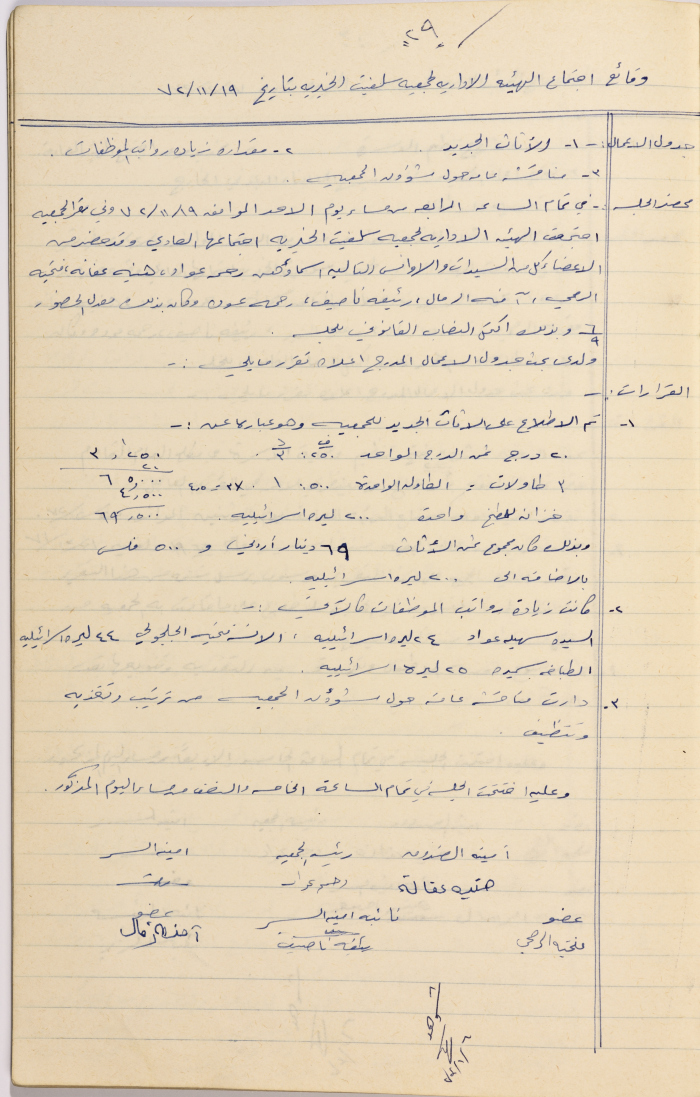 "٢٩"
وقائع اجتماع الهيئه الاداريه لجمعيه سلفيت الخيريه بتاريخ ٧٢/١١/١٩
جدول الاعمال :- ١- الأثاث الجديد . ٢- مقدار زياده رواتب الموظفات .
٣- مناقشه عامه حول شؤون الجمعيه .
محضر الجلسه :- في تمام الساعه الرابعه من مساء يوم الاحد الموافق ٧٢/١١/١٩ وفي مقر الجمعيه
اجتمعت الهيئه الاداريه لجمعيه سلفيت الخيريه اجتماعها العادي وقد حضر من
الاعضاء كل من السيدات والاوانس التاليه اسماؤهن رحمه عواد ، هنيه عفانه ، فتحيه
الرمحي ، آمنه الرمال ، رئيفه ناصيف ، رحمه عوده وكان بذلك معدل الحضور
٦/٩ وبذلك اكتمل النصاب القانوني للجلسه .
ولدى بحث جدول الاعمال المدرج اعلاه تقرر مايلي :-
القرارات :-
١- تم الاطلاع على الاثاث الجديد للجمعيه وهو عباره عن :-
٢٠ درج ثمن الدرج الواحد ٢٥٠ ف ٣ د . ٣,٢٥٠
٢٠
٣ طاولات = الطاوله الواحدة ٥٠٠ ١ . ٣x ٤,٥٠٠ ٦٥,٠٠٠
٤,٥٠٠
خزانه للمطبخ واحدة ٢٠٠ ليره اسرائيليه . ٦٩,٥٠٠
وبذلك كان مجموع ثمن الأثاث ٦٩ دينار أردني و ٥٠٠ فلس
بالاضافه الى ٢٠٠ ليره اسرائيليه .
٢- كانت زيادة رواتب الموظفات كالآتي :-
السيده سهيله عواد ٢٤ ليره اسرائيليه ، الآنسه فتحيه الجلجولي ٢٤ ليره اسرائيليه
الطباخه سميحه ٢٥ ليرة اسرائيليه .
٣- دارت مناقشه عامه حول شؤون الجمعيه من ترتيب وتغذيه
وتنظيف .
وعليه اختتمت الجلسه في تمام الساعة الخامسه والنصف من مساء اليوم المذكور .
أمينه الصندوق رئيسه الجمعيه امينه السر
هنيه عفانة رحمه عواد
عضو نائبه امينه السر عضو
فتحيه الرمحي رئيفه ناصيف آمنه الرمال